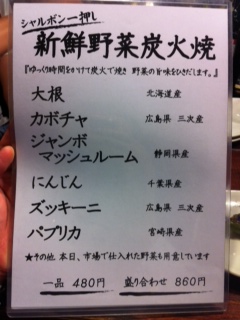 シャルボン一押し
新鮮野菜炭火焼
『ゆっくり時間をかけて炭火で焼き 野菜の旨味をひきだします。』
大根 北海道産
カボチャ 広島県 三次産
ジャンボ
マッシュルーム 静岡県産
にんじん 千葉県産
ズッキーニ 広島県 三次産
パプリカ 宮崎県産
★その他、本日、市場で仕入れた野菜も用意しています
一品 480円 盛り合わせ 860円